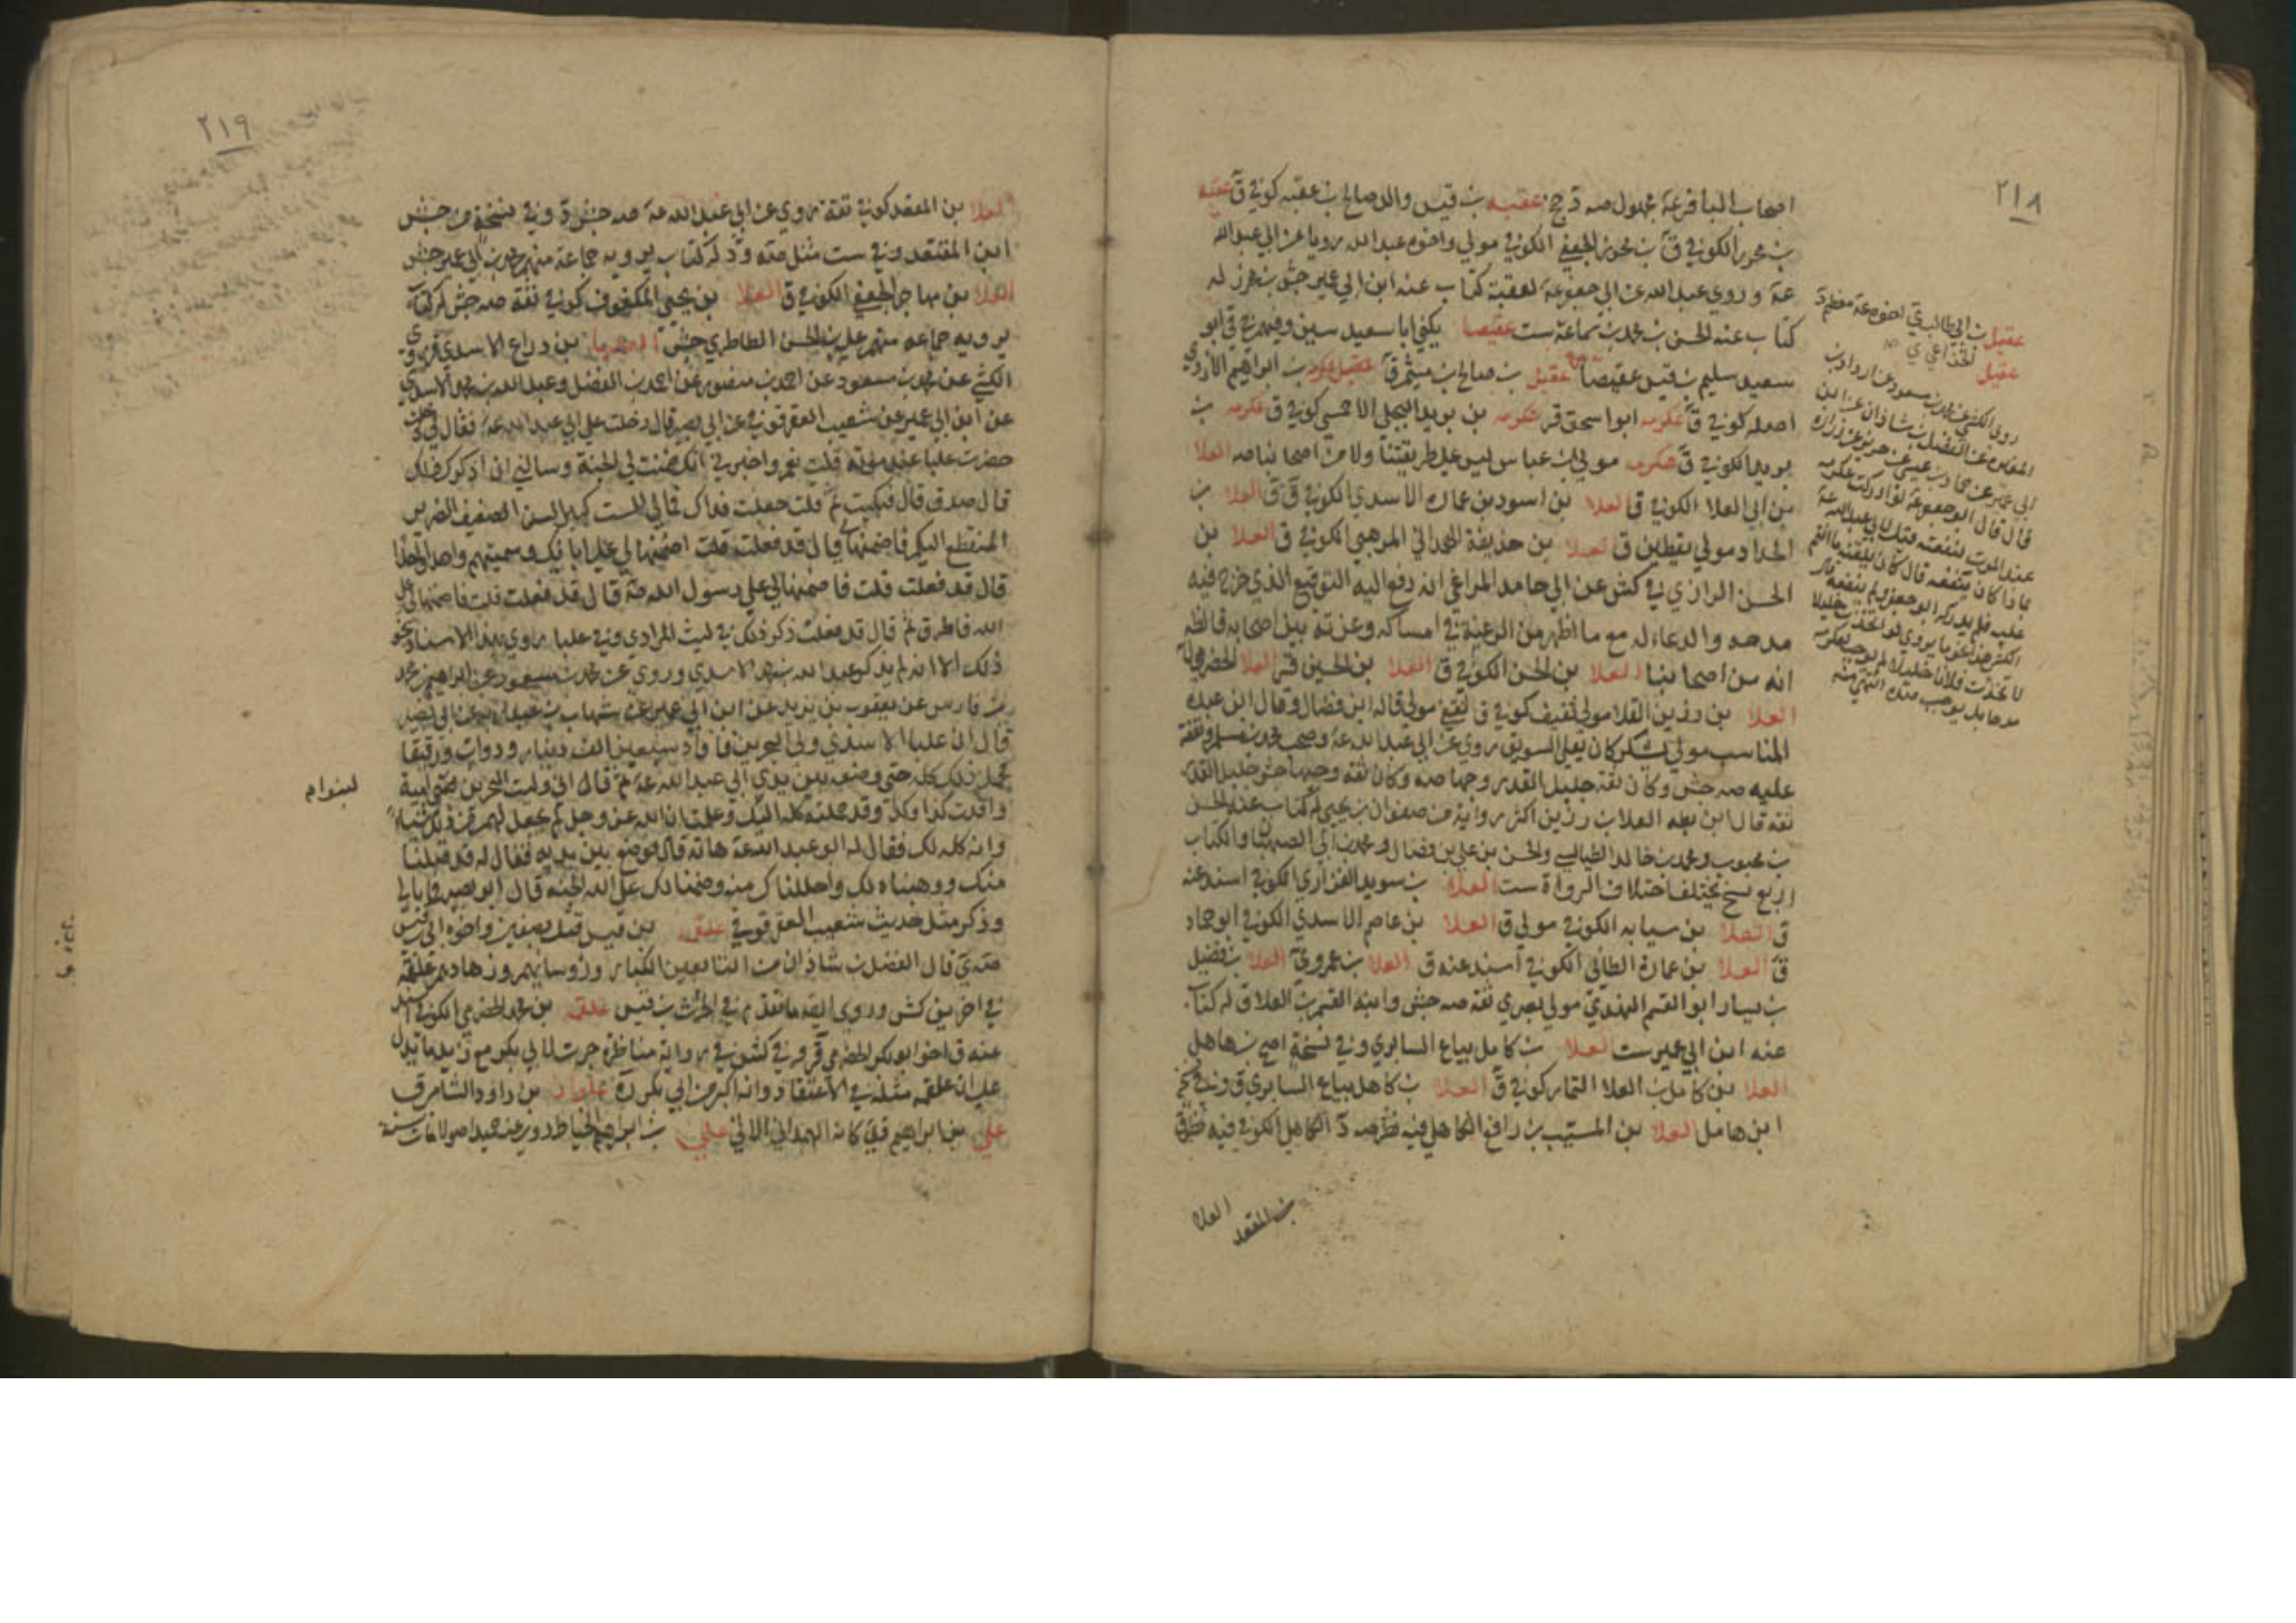 ٢١٨
اصحاب الباقر عه مجهول صه د جخ عقبه بن قيس والد صالح بن عقبه كوفي ق عقبه
بن محرز الكوفي ق بن محرز الجعفي الكوفي مولي واخوه عبد الله رويا عن ابي عبد الله
عه وروي عبد الله عن ابي جعفر عه لعقبة كتاب عنه ابن ابي عمير جش بن محرز له
كتاب عنه الحسن بن محمد بن سماعة ست عقيصا يكني ابا سعيد سين وفيهم في ق ابو
سعيد سليم بن قيس عقيصا عقيل بن صالح بن ميثم ق بن ابراهيم الازدي
اصله كوفي ق عكرمه ابو اسحق قر عكرمه بن بريد البجلي الاحمسي كوفي ق عكرمه بن
بريد الكوفي ق عكرمه مولي ابن عباس ليس علي طريقتنا ولا من اصحابنا صه العلا
بن ابي العلا الكوفي ق العلا بن اسود بن عماره الاسدي الكوفي ق ق العلا بن
الحداد مولي يقطين ق العلا بن حذيفة الحداني المرهبي الكوفي ق العلا بن
الحسن الرازي في كش عن ابي حامد المراغي انه دفع اليه التوقيع الذي خرج فيه
مدحه والدعاء له مع ما اظهر من الرغبة في امساكه وعزته بين اصحابه فالظ
انه من اصحابنا العلا بن الحسن الكوفي ق العلا بن الحسين قر العلا الحضرمي
العلا بن رزين القلا مولي ثقيف كوفي ق ثقفي مولي قاله ابن فضال وقال ابن عبده
المناسب مولي يشكر كان يقلي السويق روي عن ابي عبد الله عه وصحب محمد بن مسلم وتفقه
عليه صه جش وكان ثقة جليل القدر وجها صه وكان ثقه وجها جش جليل القدر
ثقه قال ابن بطه العلا بن رزين اكثر رواية من صفوان بن يحيي له كتاب عنه الحسن
بن محبوب ومحمد بن خالد الطيالسي والحسن بن علي بن فضال ومحمد بن ابي الصهبان والكتاب
اربع نسخ يختلف اختلاف الرواة ست العلا بن سويد الفزاري الكوفي اسند عنه
ق العلا بن سيابه الكوفي مولي ق العلا بن عاصم الاسدي الكوفي ابو حماد
ق العلا بن عمارة الطائي الكوفي اسند عنه ق العلا بن عمرو ي العلا بن فضيل
بن يسار ابو القسم النهدي مولي بصري ثقه صه جش وابنه القسم بن العلا ق له كتاب
عنه ابن ابي عمير ست العلا بن كامل بياع السابري وفي نسخة اصح بن هاهل
العلا بن كامل بن العلا التمار كوفي ق العلا بن كاهل بياع السابري ق وفي نخ
ابن هامل العلا بن المسيب بن رافع الكاهلي فيه نظر صه د الكاهلي الكوفي فيه نظر ق
عقيل بن ابي طالب ي اخوه عه معظم د
عقيل الخزاعي ي
روي الكشي عن محمد بن مسعود عن ازداد بن
المغيره عن الفضل بن شاذان عن ابن
ابي عمير عن حماد بن عيسي عن حريز عن زرارة
قال قال ابو جعفر عه لو ادركت عكرمه
عند الموت لنفعته فقيل لابي عبد الله عه
بماذا كان ينفعه قال كان يلقنه ما انتم
عليه فلم يدركه ابو جعفر ولم ينفعه قال
الكشي هذا نحو ما يروي لو اتخذت خليلا
لاتخذت فلانا خليلا لم يوجب لعكرمه
مدحا بل يوجب ضده انتهي منه
العلا
بن المقعد
٢١٩
العلا بن المقعد كوفي ثقة روي عن ابي عبد الله عه صه جش د وفي نسخة من جش
ابن المقتعد وفي ست مثل صه و د له كتاب يرويه جماعة منهم محمد بن ابي عمير جش
العلا بن مهاجر الجعفي الكوفي ق العلا بن يحيي المكفوف كوفي ثقة صه جش له كتاب
يرويه جماعه منهم علي بن الحسن الطاطري جش بن دراع الاسدي
الكشي عن محمد بن مسعود عن احمد بن منصور عن احمد بن الفضل وعبد الله بن محمد الاسدي
عن ابن ابي عمير عن شعيب العقرقوفي عن ابي بصير قال دخلت علي ابي عبد الله عه فقال لي
حضرت علبا عند موته قلت نعم واخبرني انك ضمنت لي الجنة وسالني ان اذكرك ذلك
قال صدق قال فبكيت ثم قلت جعلت فداك فمالي الست كبير السن الضعيف الضرير
المنقطع اليكم فاضمنها لي قال قد فعلت قلت اضمنها لي علي ابائك وسميتهم واحدا واحدا
قال قد فعلت قلت فاضمنها لي علي رسول الله صه قال قد فعلت قلت فاضمنها لي علي
الله فاطرق ثم قال قد فعلت ذكر ذلك في ليث المرادي وفي علبا روي بهذا الاسناد نحو
ذلك الا انه لم يذكر عبد الله بن محمد الاسدي وروي عن محمد بن مسعود عن ابراهيم بن محمد
بن فارس عن يعقوب بن يزيد عن ابن ابي عمير عن شهاب بن عبد ربه عن ابي بصير
قال ان علبا الاسدي ولي البحرين فافاد سبعين الف دينار ودواب ورقيقا
فحمل ذلك كله حتي وضعه بين يدي ابي عبد الله عه ثم قال اني وليت البحرين لبني امية
وافدت كذا وكذا وقد حملته كله اليك وعلمت ان الله عز وجل لم يجعل لهم من ذلك شيئا
وانه كله لك فقال له ابو عبد الله عه هاته قال فوضع بين يديه فقال له قد قبلنا
منك ووهبناه لك واحللناك منه وضمنا لك علي الله الجنه قال ابو بصير
وذكر مثل حديث شعيب العقرقوفي علقمه بن قيس قتل بصفين واخوه ابي بن قيس
صه ي قال الفضل بن شاذان من التابعين الكبار ورؤسائهم وزهادهم علقمة
في اخرين كش وروي ايضا ما تقدم في الحرث بن قيس علقمه بن محمد الحضرمي الكوفي اسند
عنه ق اخو ابو بكر الحضرمي قر ق وفي كش في رواية مناظرة جرت لابي بكر مع زيد ما يدل
علي ان علقمه مثله في الاعتقاد وانه اكبر من ابي بكر د علوان بن داود الشامي ق
علي بن ابراهيم الهمداني علي بن ابراهيم الخياط روي عنه حميد اصولا مات سنة